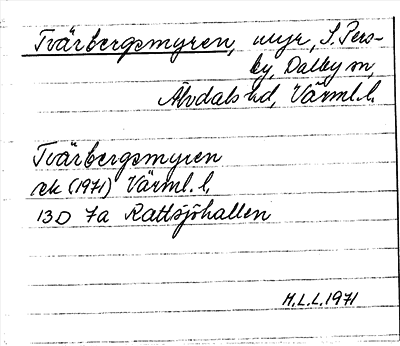 Tvärbergsmyren, myr, S. Pers-
by, Dalby sn,
Älvdals hd, Värml. l.
Tvärbergsmyren
ek (1971) Värml. l.
13D 7a Rattsjöhallen
H.L.L. 1971